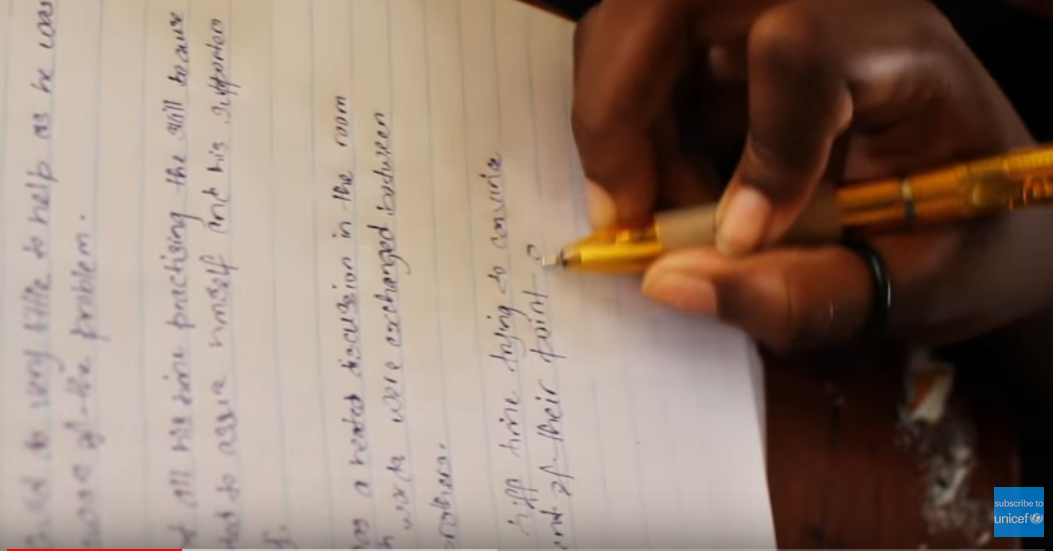 to very little to help as he was
of the problem.
all his time practising the skill because
to himself and his supporters
a heated discussion in the room
were exchanged between
brothers.
time trying to convince
of their point
subscribe to
unicef